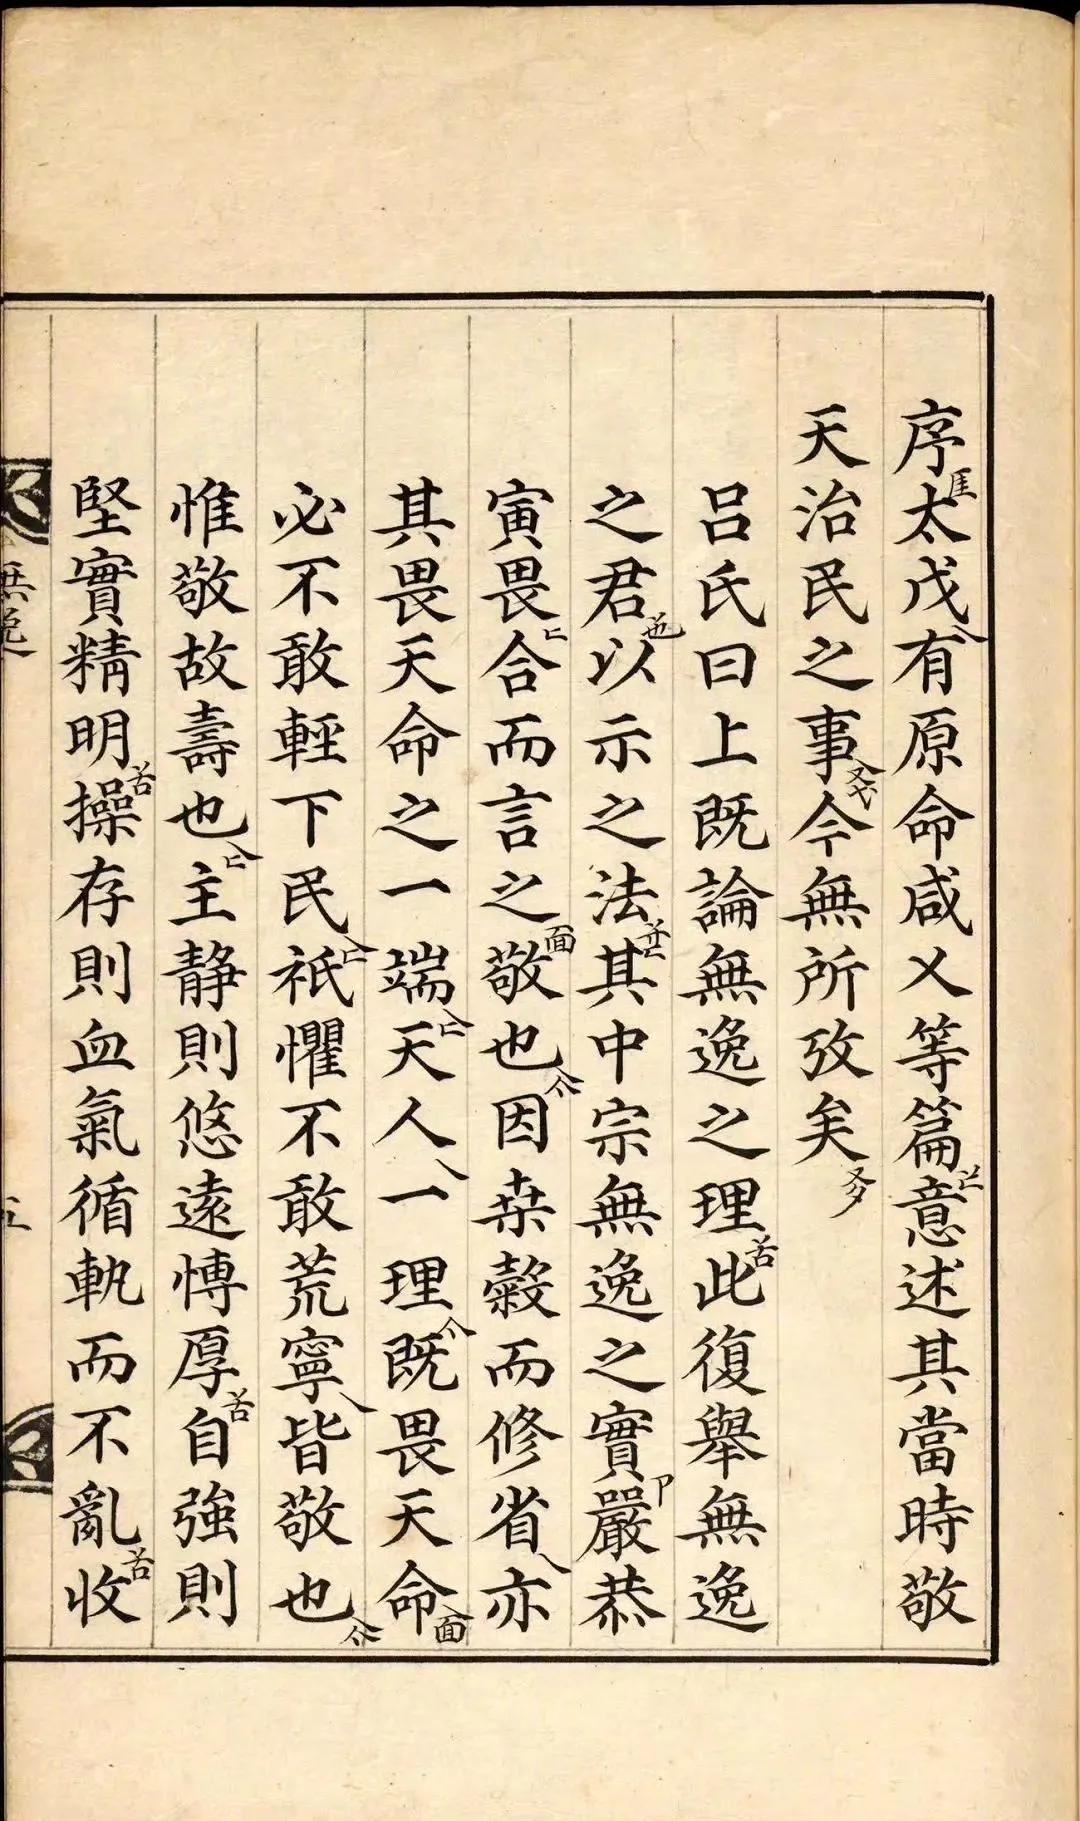 序太戊有原命咸乂等篇意述其當時敬
天治民之事今無所攷矣
呂氏曰上既論無逸之理此復舉無逸
之君以示之法其中宗無逸之實嚴恭
寅畏合而言之敬也因桒糓而修省亦
其畏天命之一端天人一理既畏天命
必不敢輕下民祗懼不敢荒寧皆敬也
惟敬故壽也主静則悠遠愽厚自強則
堅實精明操存則血氣循軌而不亂收
無逸